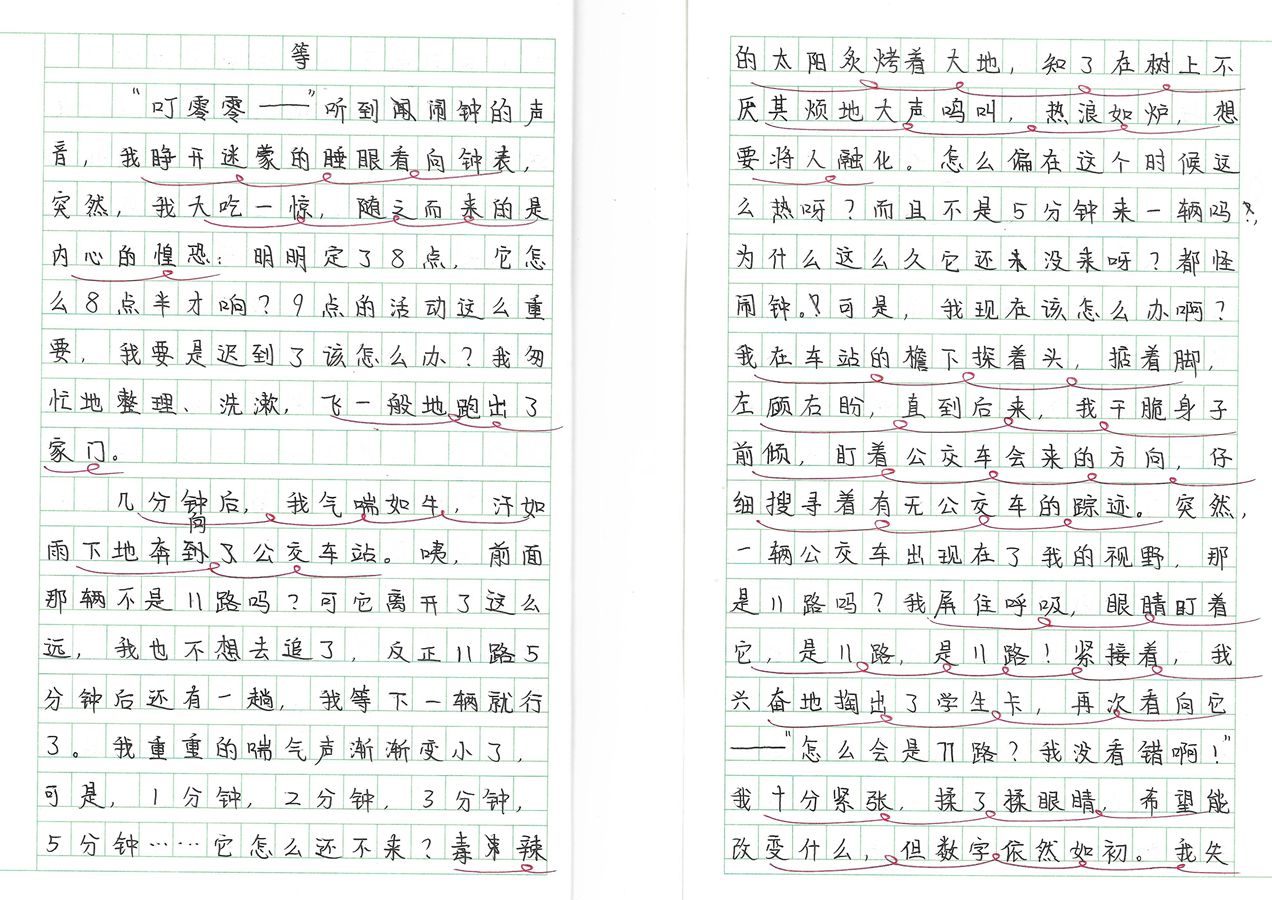 等
“叮零零——”听到闹闹钟的声
音，我睁开迷蒙的睡眼看向钟表，
突然，我大吃一惊，随之而来的是
内心的惶恐：明明定了8点，它怎
么8点半才响？9点的活动这么重
要，我要是迟到了该怎么办？我匆
忙地整理、洗漱，飞一般地跑出了
家门。
几分钟后，我气喘如牛，汗如
向
雨下地奔到了公交车站。咦，前面
那辆不是11路吗？可它离开了这么
远，我也不想去追了，反正11路5
分钟后还有一趟，我等下一辆就行
了。我重重的喘气声渐渐变小了，
可是，1分钟，2分钟，3分钟，
5分钟……它怎么还不来？毒束辣
的太阳炙烤着大地，知了在树上不
厌其烦地大声鸣叫，热浪如炉，想
要将人融化。怎么偏在这个时候这
么热呀？而且不是5分钟来一辆吗？，
为什么这么久它还未没来呀？都怪
闹钟。！可是，我现在该怎么办啊？
我在车站的檐下探着头，掂着脚，
左顾右盼，直到后来，我干脆身子
前倾，盯着公交车会来的方向，仔
细搜寻着有无公交车的踪迹。突然，
一辆公交车出现在了我的视野，那
是11路吗？我屏住呼吸，眼睛盯着
它，是11路，是11路！紧接着，我
兴奋地掏出了学生卡，再次看向它
——“怎么会是71路？我没看错啊！”
我十分紧张，揉了揉眼睛，希望能
改变什么，但数字依然如初。我失